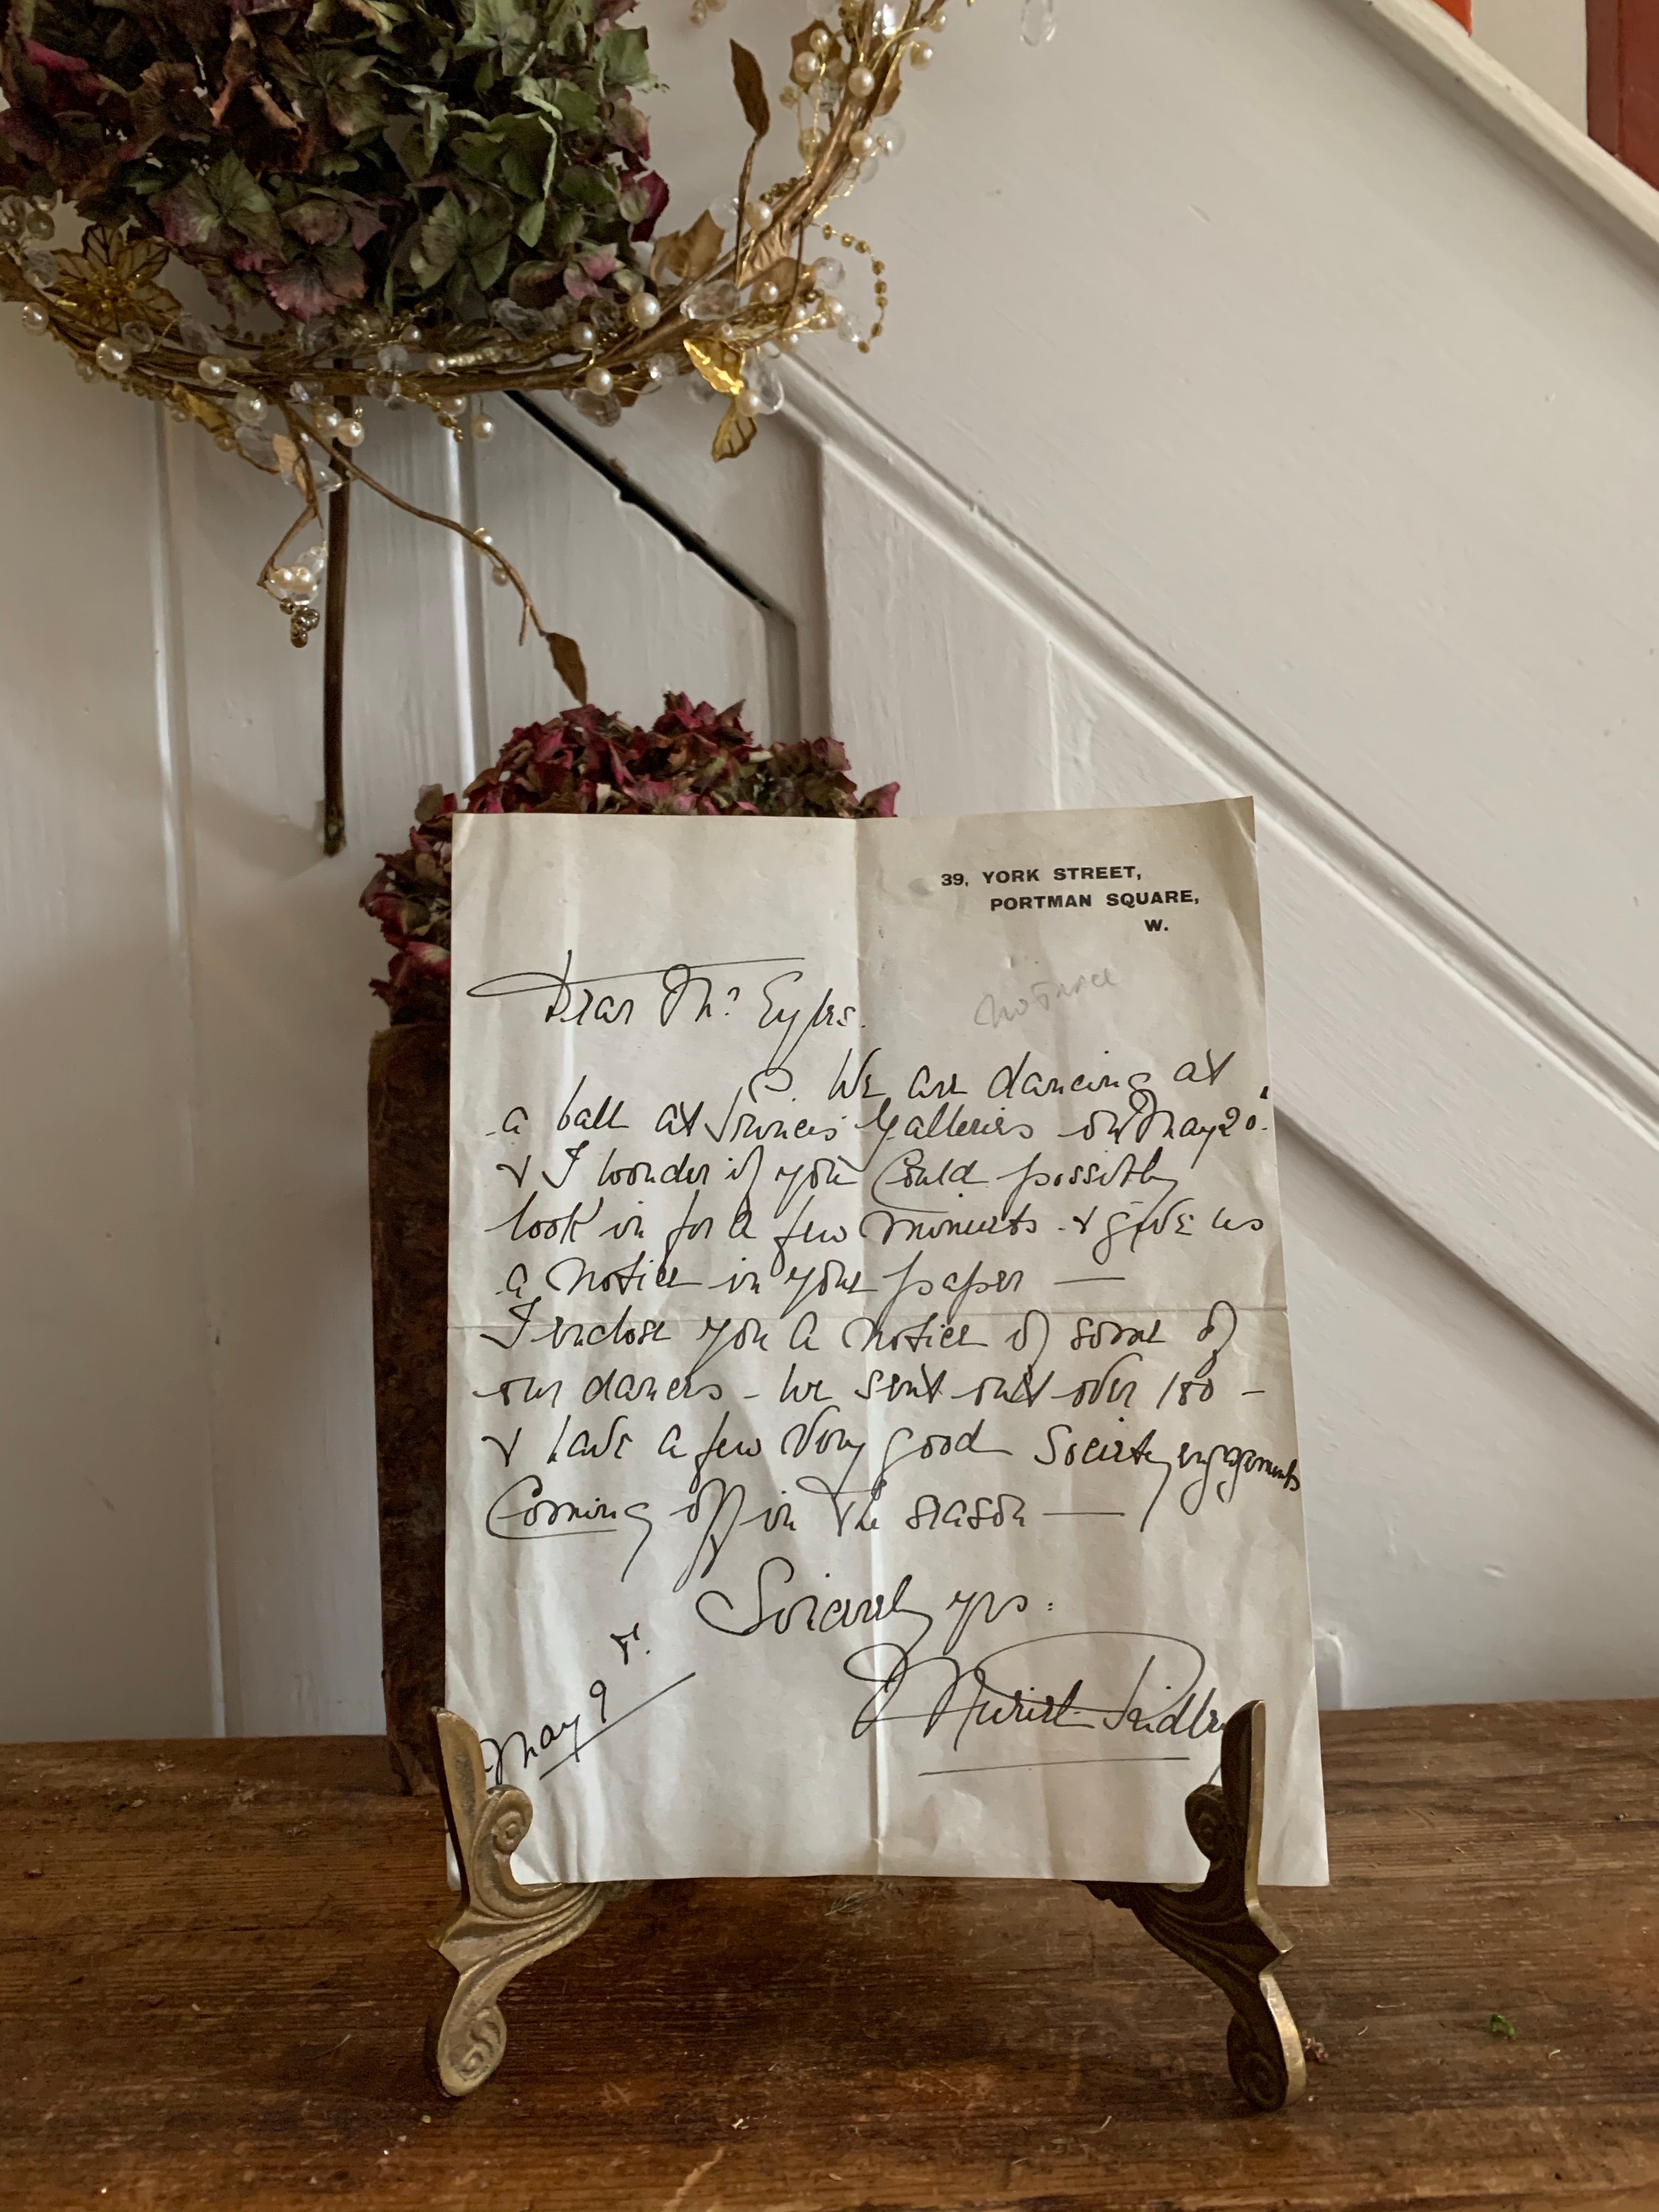 39, YORK STREET,
PORTMAN SQUARE,
W.
Dear Mr. Eyles.
We are dancing at
a ball at Princes Galleries on May 20.
& I wonder if you could possibly
look in for a few minutes - & give us
a notice in your paper —
I enclose you a notice of some of
our dances - We sent out over 180 -
& have a few very good Society engagements
Coming off in the season —
Sincerely yrs:
Muriel
May 9th.